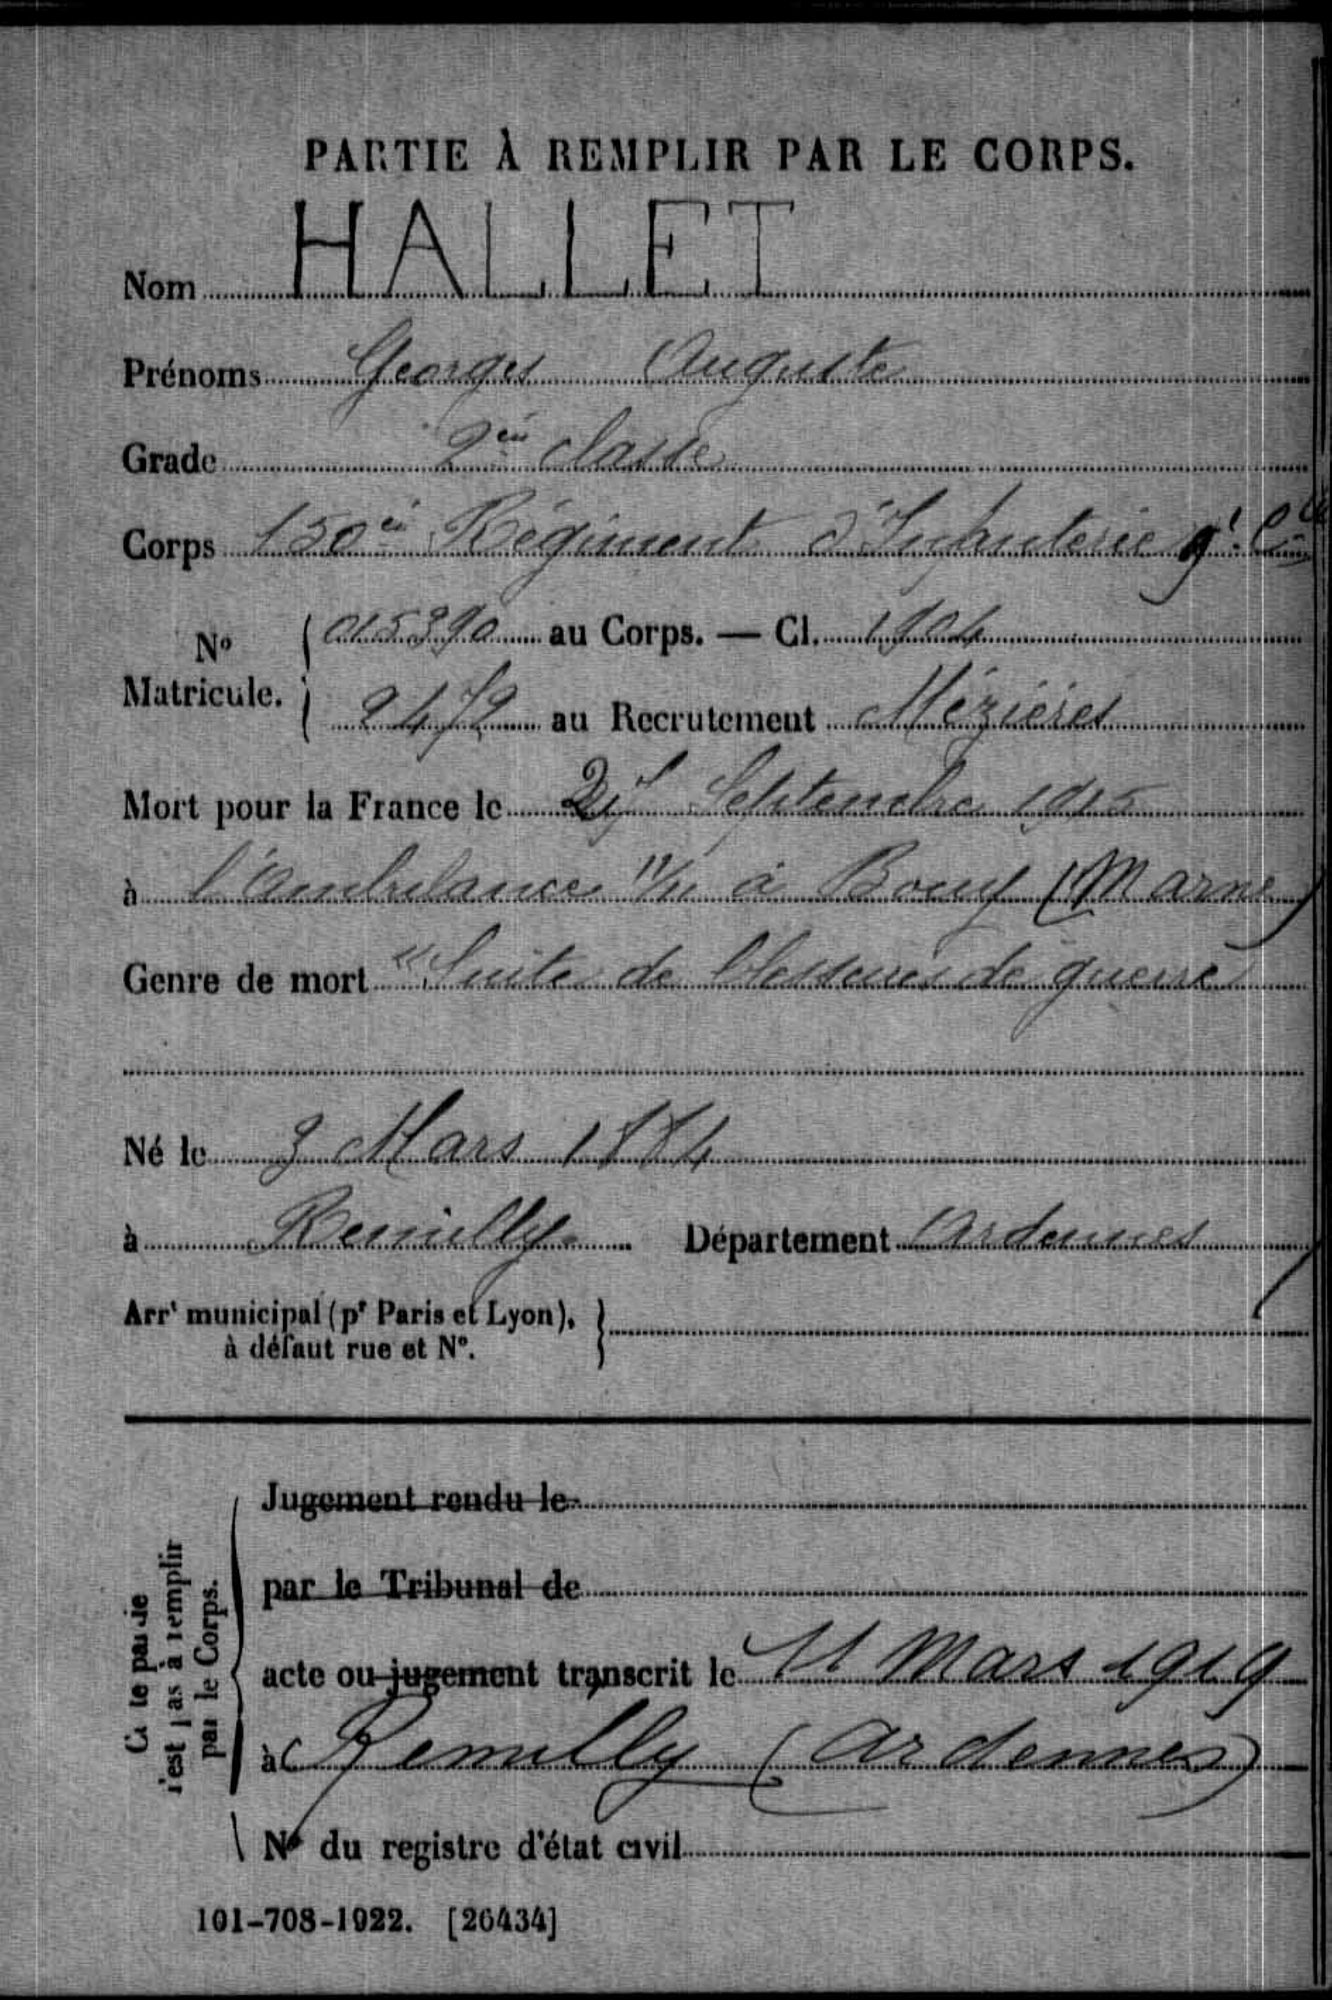 PARTIE À REMPLIR PAR LE CORPS.
Nom HALLET
Prénoms Georges Auguste
Grade 2è classe
Corps 150è Régiment d'Infanterie 9e Cie
No Matricule. 015390 au Corps. — Cl. 1904
2472 au Recrutement Mézières
Mort pour la France le Septembre 1915
à l'Ambulance à Bouy (Marne)
Genre de mort "Suites de blessures de guerre
Né le 3 Mars 1884
à Remilly Département Ardennes
Arrt municipal (pr Paris et Lyon),
à défaut rue et No.
Jugement rendu le
par le Tribunal de
acte ou jugement transcrit le 11 Mars 1919
à Remilly (Ardennes)
No du registre d'état civil
Cette partie
n'est pas à remplir
par le Corps.
101-708-1922. [26434]